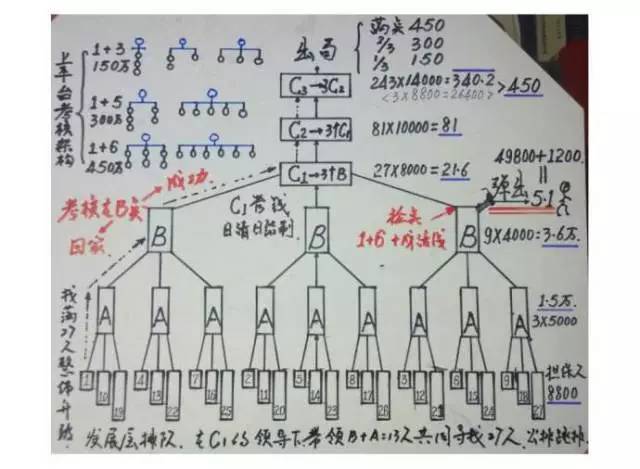 上平台考核架构
1+3
150万
1+5
300万
1+6
450万
出局
满点 450
2/3 300
1/3 150
243×14000=340.2
<3×8800=26400>
>450
C3→3C2
C2→3个C1
81×10000=81
C1→3个B
27×8000=21.6
49800+1200
=
弹出 5.1
成功
考核在B点
回家
C1带线
日清日结制
1+6+
9×4000=3.6万
B
B
B
A
A
A
A
A
A
A
A
A
1.5万
3×5000
找满27人整体升级
1
10
19
4
13
22
7
16
25
2
11
20
5
14
23
8
17
26
3
12
21
6
15
24
9
18
27
担保人
8800
发展层排队 在C1的领导下带领B+A=13人共同寻找27人